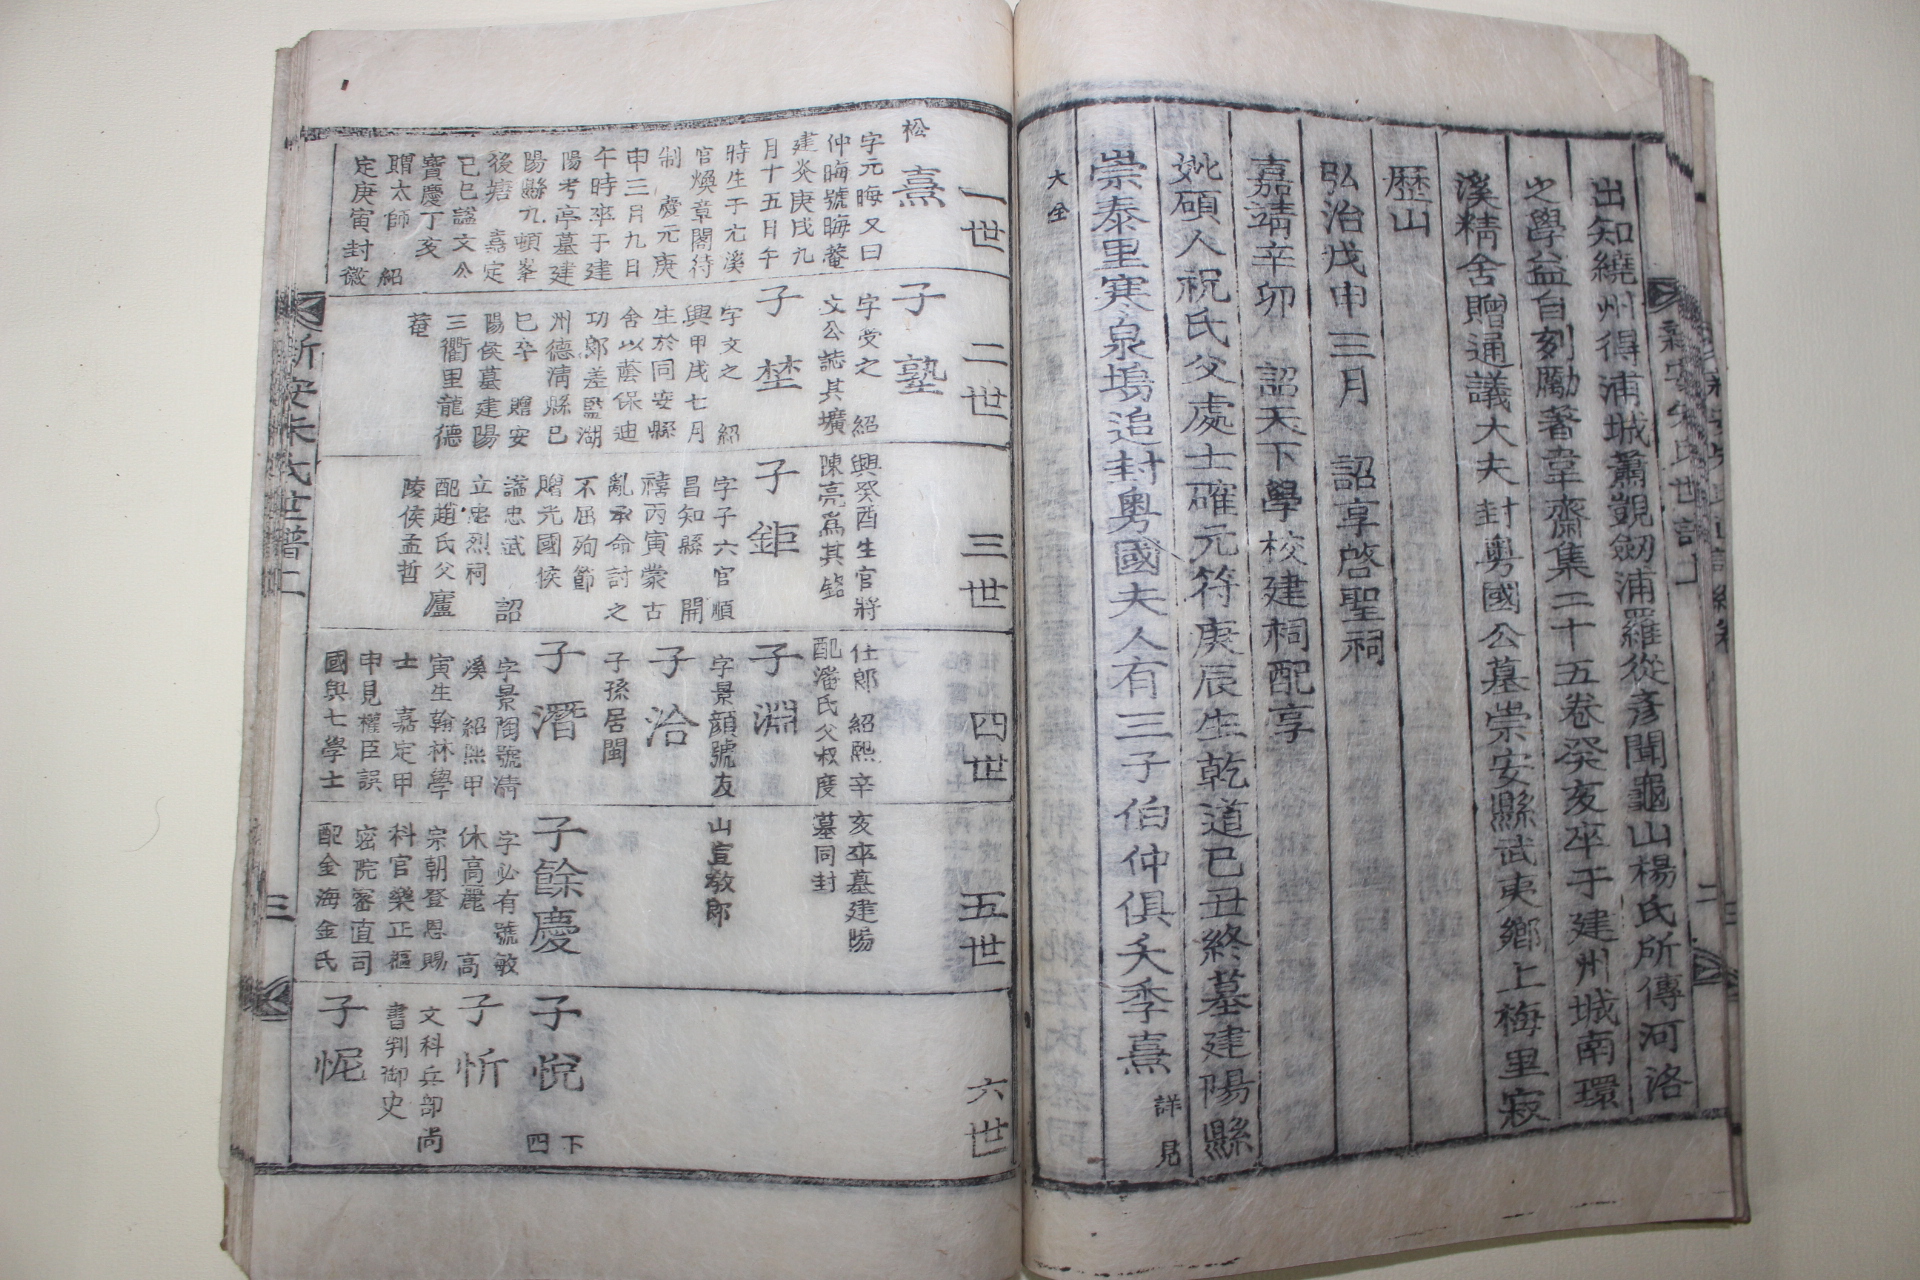 出知繞州得浦城蕭覬劒浦羅從彦聞龜山楊氏所傳河洛
之學益自刻勵著韋齋集二十五卷癸亥卒于建州城南環
溪精舍贈通議大夫封粤國公墓崇安縣武夷鄉上梅里寂
歷山
弘治戊申三月 詔享啓聖祠
嘉靖辛卯 詔天下學校建祠配享
妣碩人祝氏父處士確元符庚辰生乾道己丑終墓建陽縣
崇泰里寒泉塢追封粤國夫人有三子伯仲俱夭季熹 詳見
大全
新安朱氏世譜
二
一世
二世
三世
四世
五世
六世
松
熹
字元晦又曰
仲晦號晦菴
建炎庚戌九
月十五日午
時生于尤溪
官煥章閣待
制 慶元庚
申三月九日
午時卒于建
陽考亭墓建
陽縣九頓峯
後塘 嘉定
己巳謚文公
寶慶丁亥
贈太師 紹
定庚寅封徽
子塾
字受之 紹
興癸酉生官將
仕郎 紹熙辛
亥卒墓建陽
文公誌其壙
陳亮爲其銘
配潘氏父叔度
墓同封
子埜
字文之 紹
興甲戌七月
生於同安縣
舍以蔭保迪
功郎差監湖
州德淸縣巳
巳卒 贈安
陽侯墓建陽
三衢里龍德
菴
子鉅
字子六官順
昌知縣 開
禧丙寅蒙古
亂承命討之
不屈殉節
贈光國侯
謚忠武 詔
立忠烈祠
配趙氏父廬
陵侯孟哲
子淵
字景顔號友
山宣敎郎
子洽
子孫居閩
子潛
字景陶號淸
溪 紹熙甲
寅生翰林學
士 嘉定甲
申見權臣誤
國與七學士
子餘慶
字必有號敏
休高麗 高
宗朝登恩賜
科官樂正樞
密院審直司
配金海金氏
子悅
下四
子忻
文科兵部尚
書判御史
子怩
新安朱氏世譜二
三